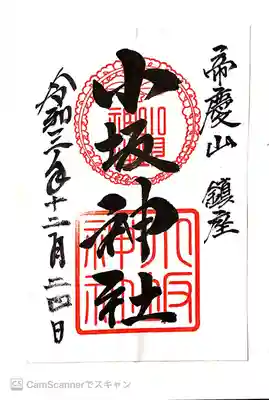 帝慶山 鎮座
小坂神社
令和三年十二月二四日
小坂神社
CS CamScannerでスキャン